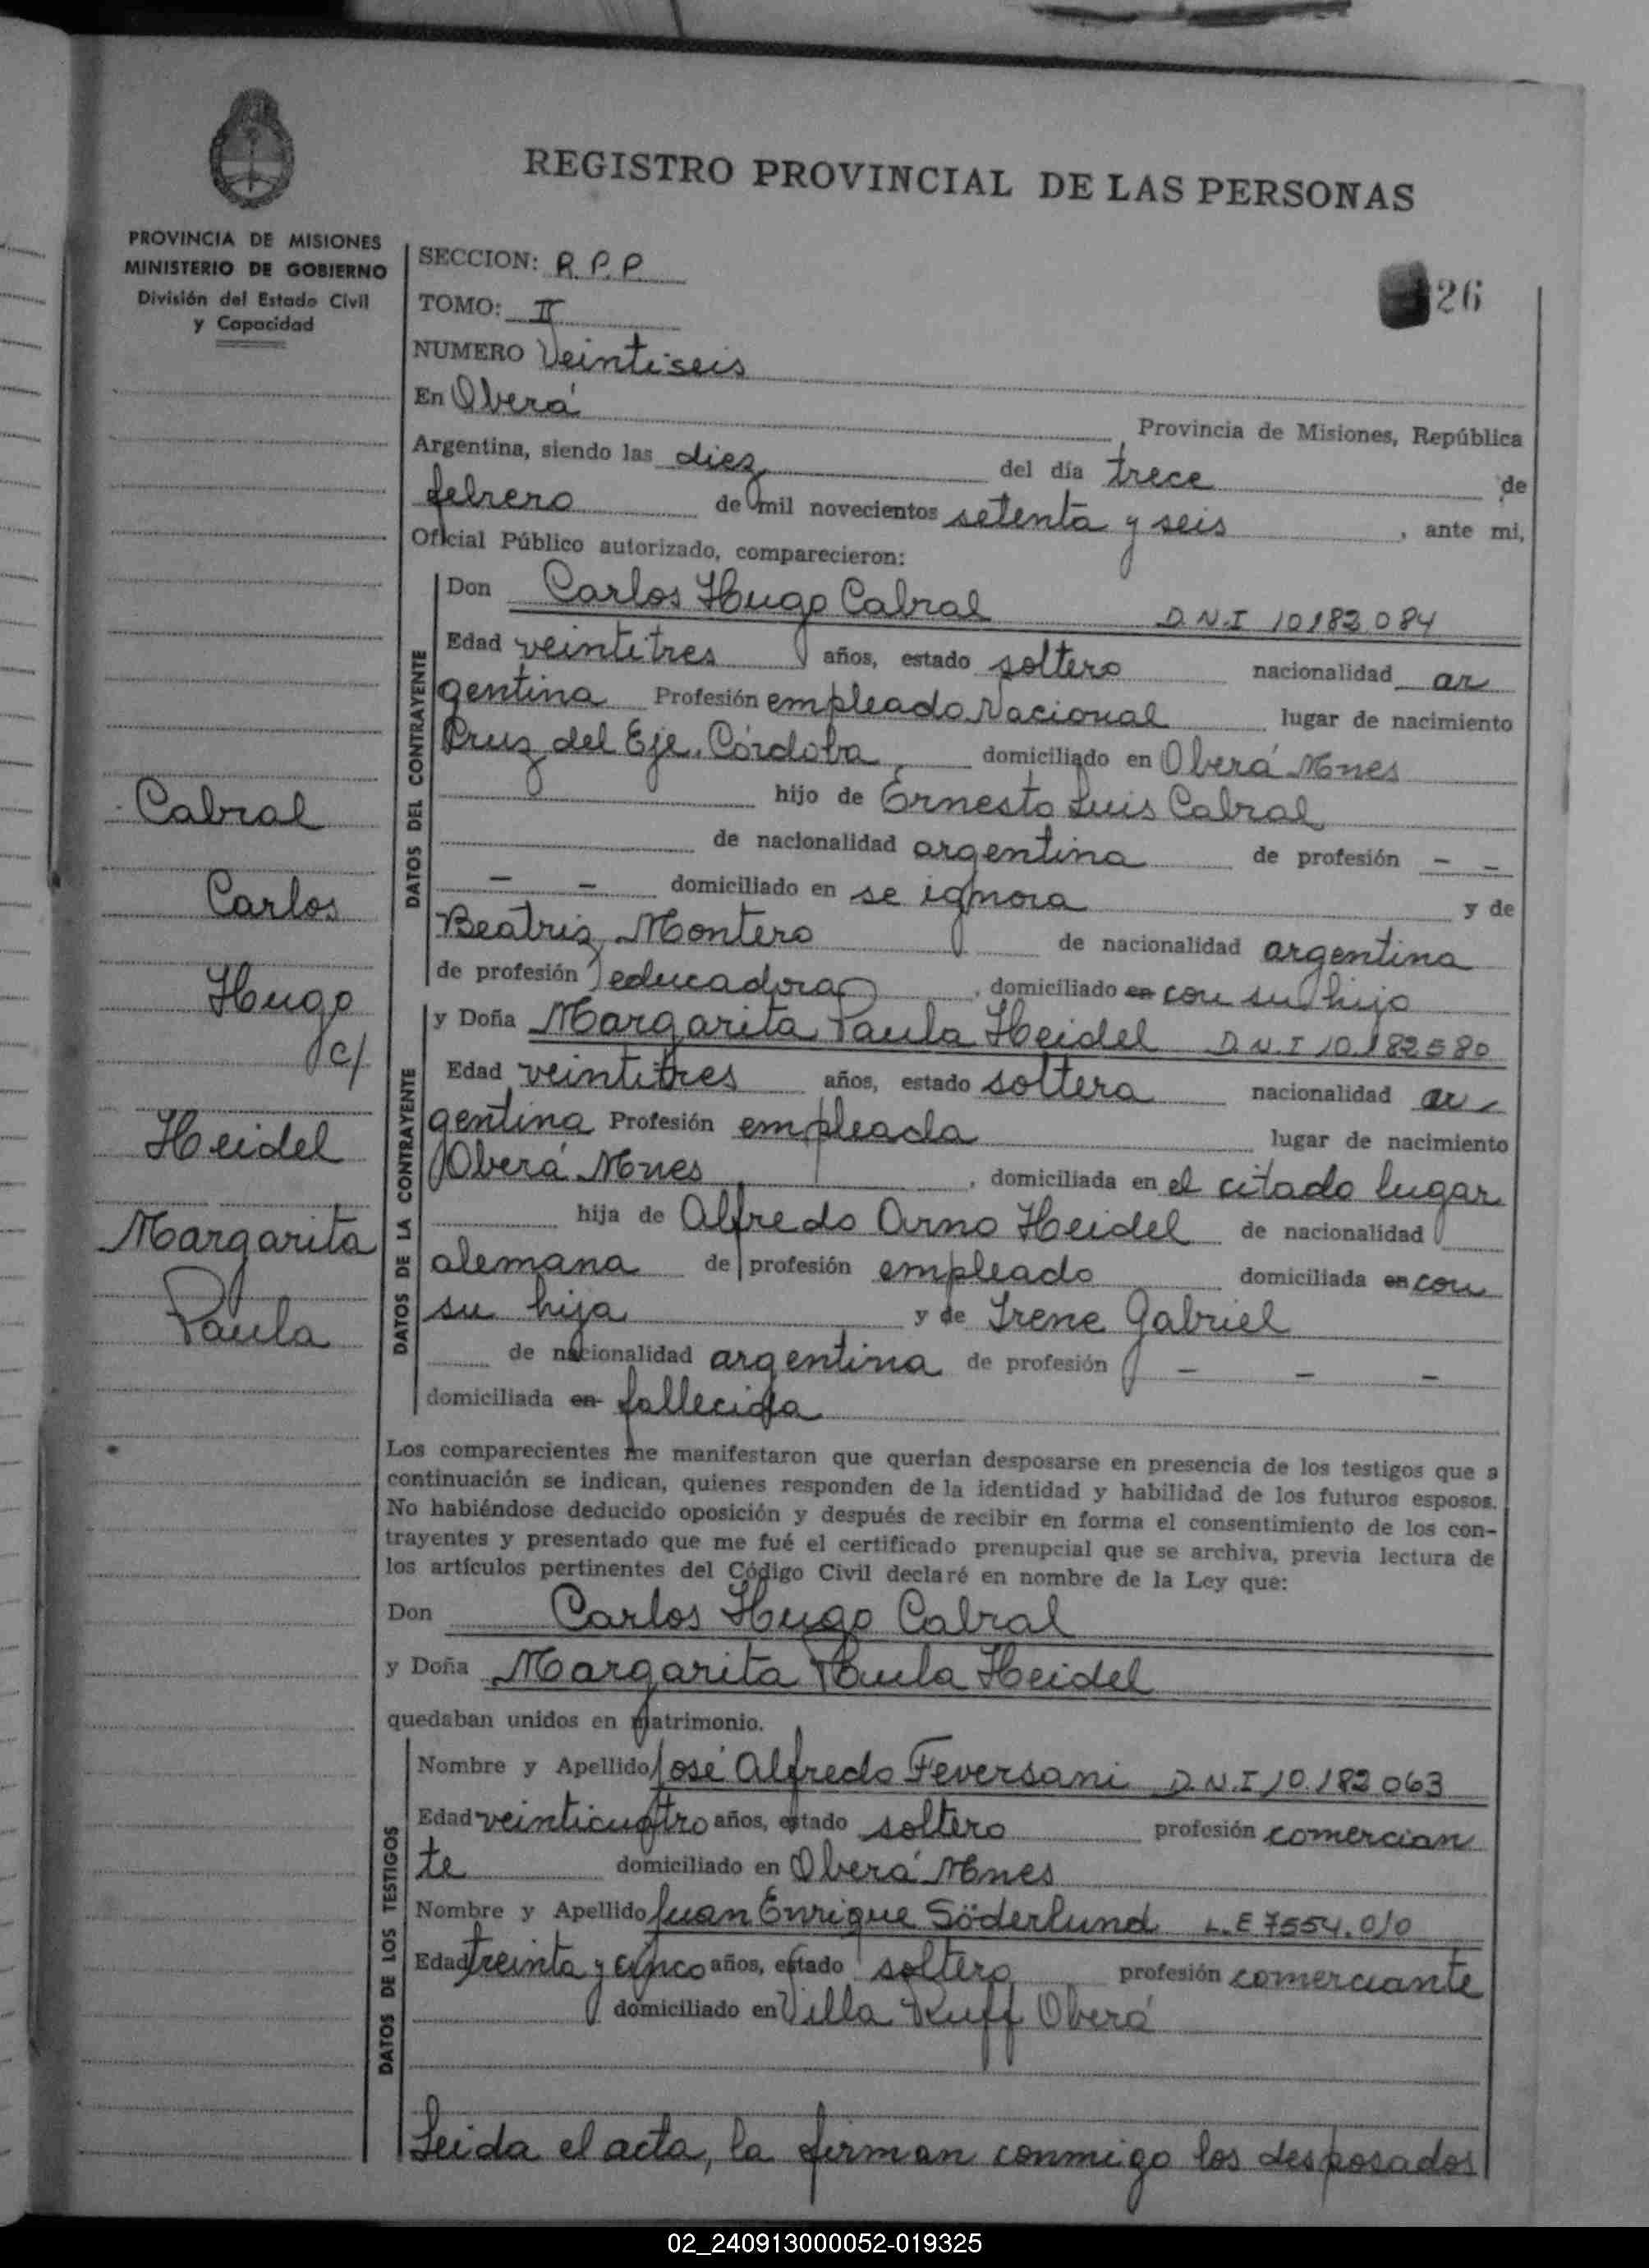 REGISTRO PROVINCIAL DE LAS PERSONAS
PROVINCIA DE MISIONES
MINISTERIO DE GOBIERNO
División del Estado Civil
y Capacidad
Cabral
Carlos
Hugo
c/
Heidel
Margarita
Paula
SECCION: R.P.P.
26
TOMO: II
NUMERO Veintiseis
En Oberá Provincia de Misiones, República
Argentina, siendo las diez del día trece de
febrero de mil novecientos setenta y seis, ante mi,
Oficial Público autorizado, comparecieron:
DATOS DEL CONTRAYENTE
Don Carlos Hugo Cabral D.N.I 10182.084
Edad veintitres años, estado soltero nacionalidad ar
gentina Profesión empleado Nacional lugar de nacimiento
Cruz del Eje. Córdoba, domiciliado en Oberá Mnes
hijo de Ernesto Luis Cabral
de nacionalidad argentina de profesión - -
- - domiciliado en se ignora y de
Beatriz Montero de nacionalidad argentina
de profesión educadora, domiciliado en con su hijo
DATOS DE LA CONTRAYENTE
y Doña Margarita Paula Heidel D.N.I 10.182580
Edad veintitres años, estado soltera nacionalidad ar-
gentina Profesión empleada lugar de nacimiento
Oberá Mnes, domiciliada en el citado lugar
hija de Alfredo Arno Heidel de nacionalidad
alemana de profesión empleado domiciliada en con
su hija y de Irene Gabriel
de nacionalidad argentina de profesión - - -
domiciliada en fallecida
Los comparecientes me manifestaron que querían desposarse en presencia de los testigos que a
continuación se indican, quienes responden de la identidad y habilidad de los futuros esposos.
No habiéndose deducido oposición y después de recibir en forma el consentimiento de los con-
trayentes y presentado que me fué el certificado prenupcial que se archiva, previa lectura de
los artículos pertinentes del Código Civil declaré en nombre de la Ley que:
Don Carlos Hugo Cabral
y Doña Margarita Paula Heidel
quedaban unidos en matrimonio.
DATOS DE LOS TESTIGOS
Nombre y Apellido José Alfredo Feversani D.N.I 10.182.063
Edad veinticuatro años, estado soltero profesión comercian
te domiciliado en Oberá Mnes
Nombre y Apellido Juan Enrique Söderlund L.E 7554.010
Edad treinta y cinco años, estado soltero profesión comerciante
domiciliado en Villa Ruff Oberá
Leida el acta, la firman conmigo los desposados
02_240913000052-019325